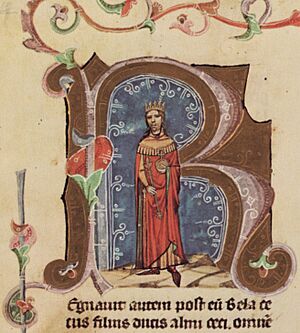 R
Egnauit autem post eū Bela ce
cus filius ducis almi ceci, omnē